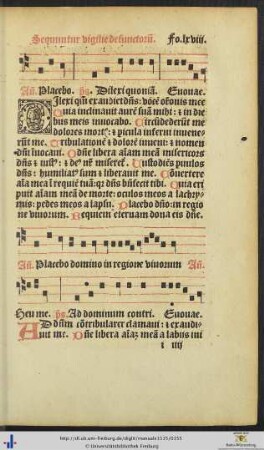 Sequuntur vigilie defunctorū. Fo. lxviii.
Añ. Placebo. ps. Dilexi quoniā. Euouae.
Dilexi qm̄ exaudiet dn̄s: vocē oratōnis mee
Quia inclinauit aurē suā mihi: ⁊ in die
bus meis inuocabo. Circūdederūt me
dolores mortꝭ: ⁊ picula inferni inuene⸗
rūt me. Tribulationē ⁊ dolorē inueni: ⁊ nomen
dn̄i inuocaui. O dn̄e libera aīam meā misericors
dn̄s ⁊ iustꝰ: ⁊ deꝰ nr̄ miseret᷑. Custodiēs puulos
dn̄s: humiliatꝰ sum ⁊ liberauit me. Cōuertere
aīa mea ī requiē tuā: qꝛ dn̄s bn̄fecit tibi. Quia eri
puit aīam meā de morte: oculos meos a lachry⸗
mis: pedes meos a lapsu. Placebo dn̄o: in regio
ne viuorum. Requiem eternam dona eis dn̄e.
Añ. Placebo domino in regione viuorum Añ.
Heu me. ps. Ad dominum contri. Euouae.
Ad dn̄m cū tribularer clamaui: ⁊ exaudi
uit me. Dn̄e libera aīaꝫ meā a labijs ini
i iiij
http://dl.ub.uni-freiburg.de/diglit/
© Universitätsbibliothek Freiburg